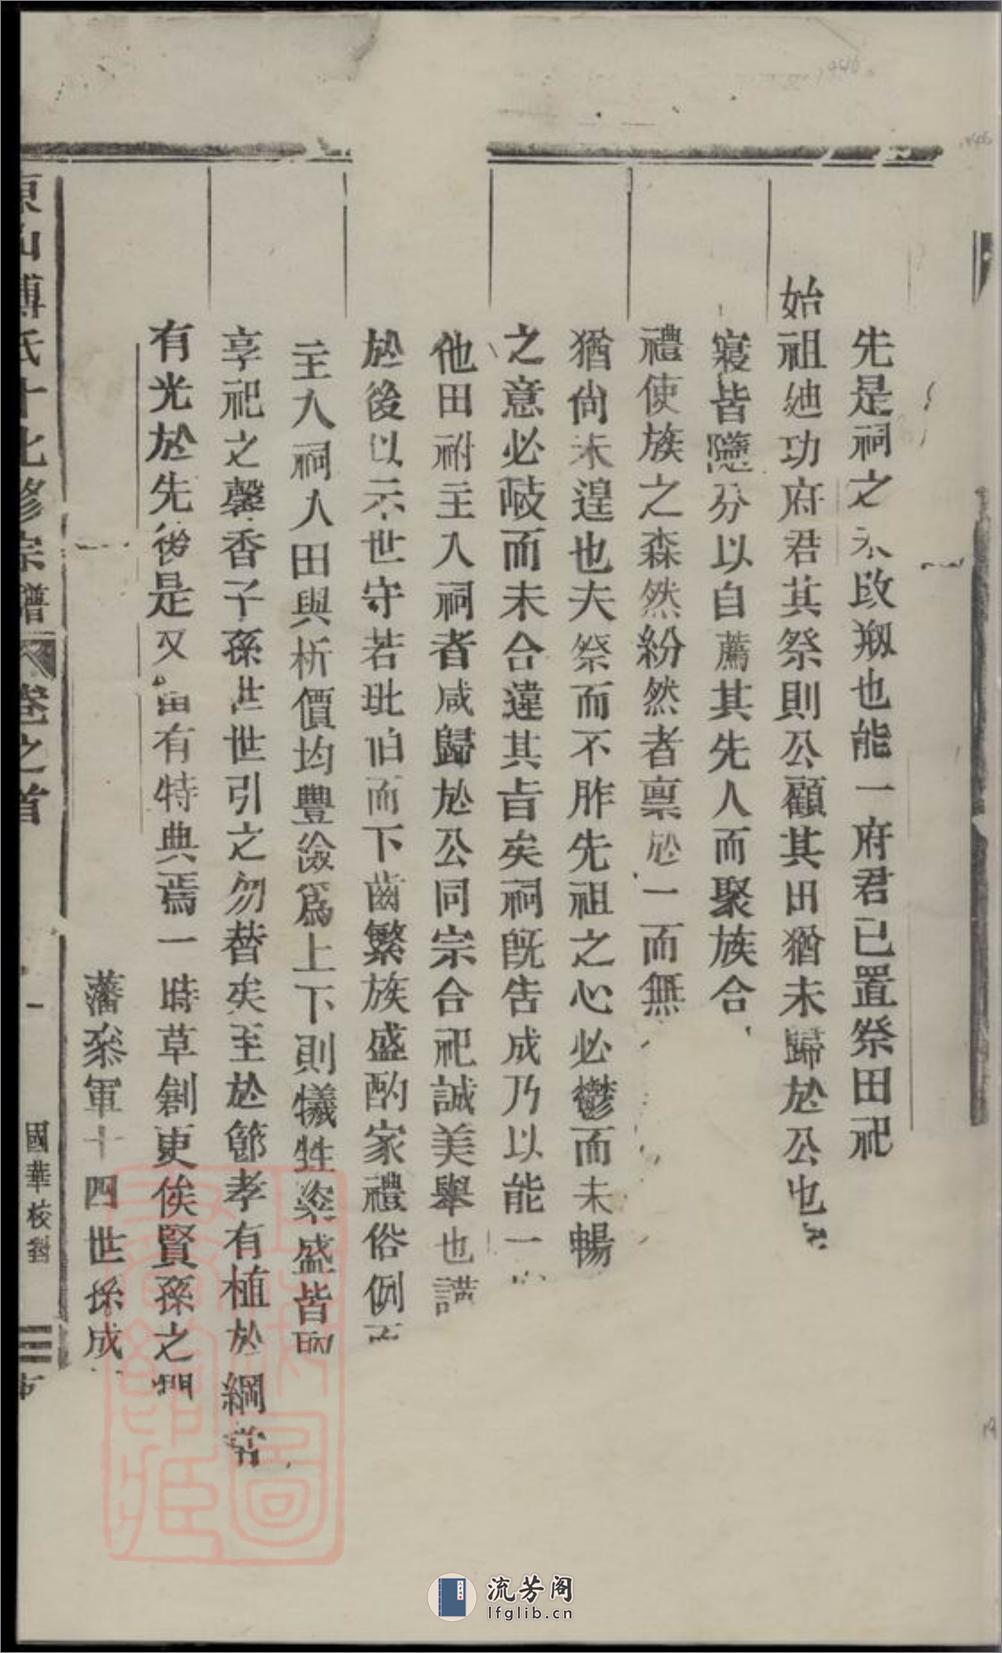 先是祠之未改剏也能一府君已置祭田祀
始祖迪功府君其祭則公顧其田猶未歸於公也
寢皆隨分以自薦其先人而聚族合
禮使族之森然紛然者稟於一而無
猶尙未遑也夫祭而不胙先祖之心必鬱而未暢
之意必歧而未合違其旨矣祠旣告成乃以能一
他田祔主入祠者咸歸於公同宗合祀誠美舉也謹
於後以示世守若玭伯而下齒繁族盛酌家禮俗例而
主入祠入田與析價均豐儉爲上下則犧牲粢盛皆取
享祀之馨香子孫世世引之勿替矣至於節孝有植於綱常
有光於先後是又當有特典焉一時草創更俟賢孫之
藩叅軍十四世孫成
東山傅氏十七修宗譜 卷之首 一 國華校對
流芳阁
lfglib.cn